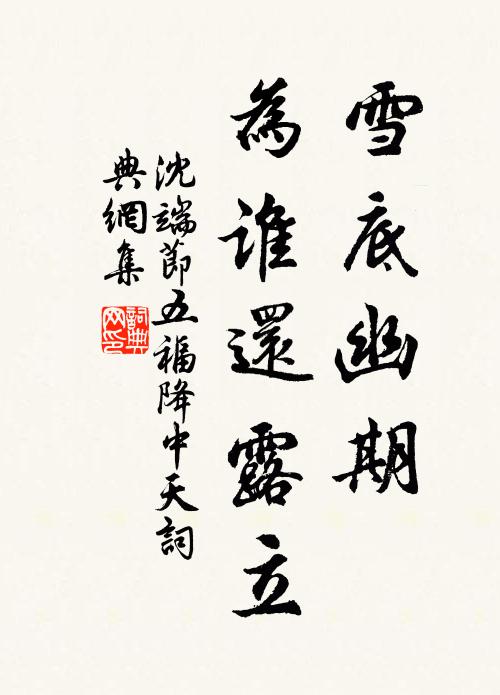 雪底幽期
為誰還露立
沈端節五福降中天詞
典網集
詞典
网印